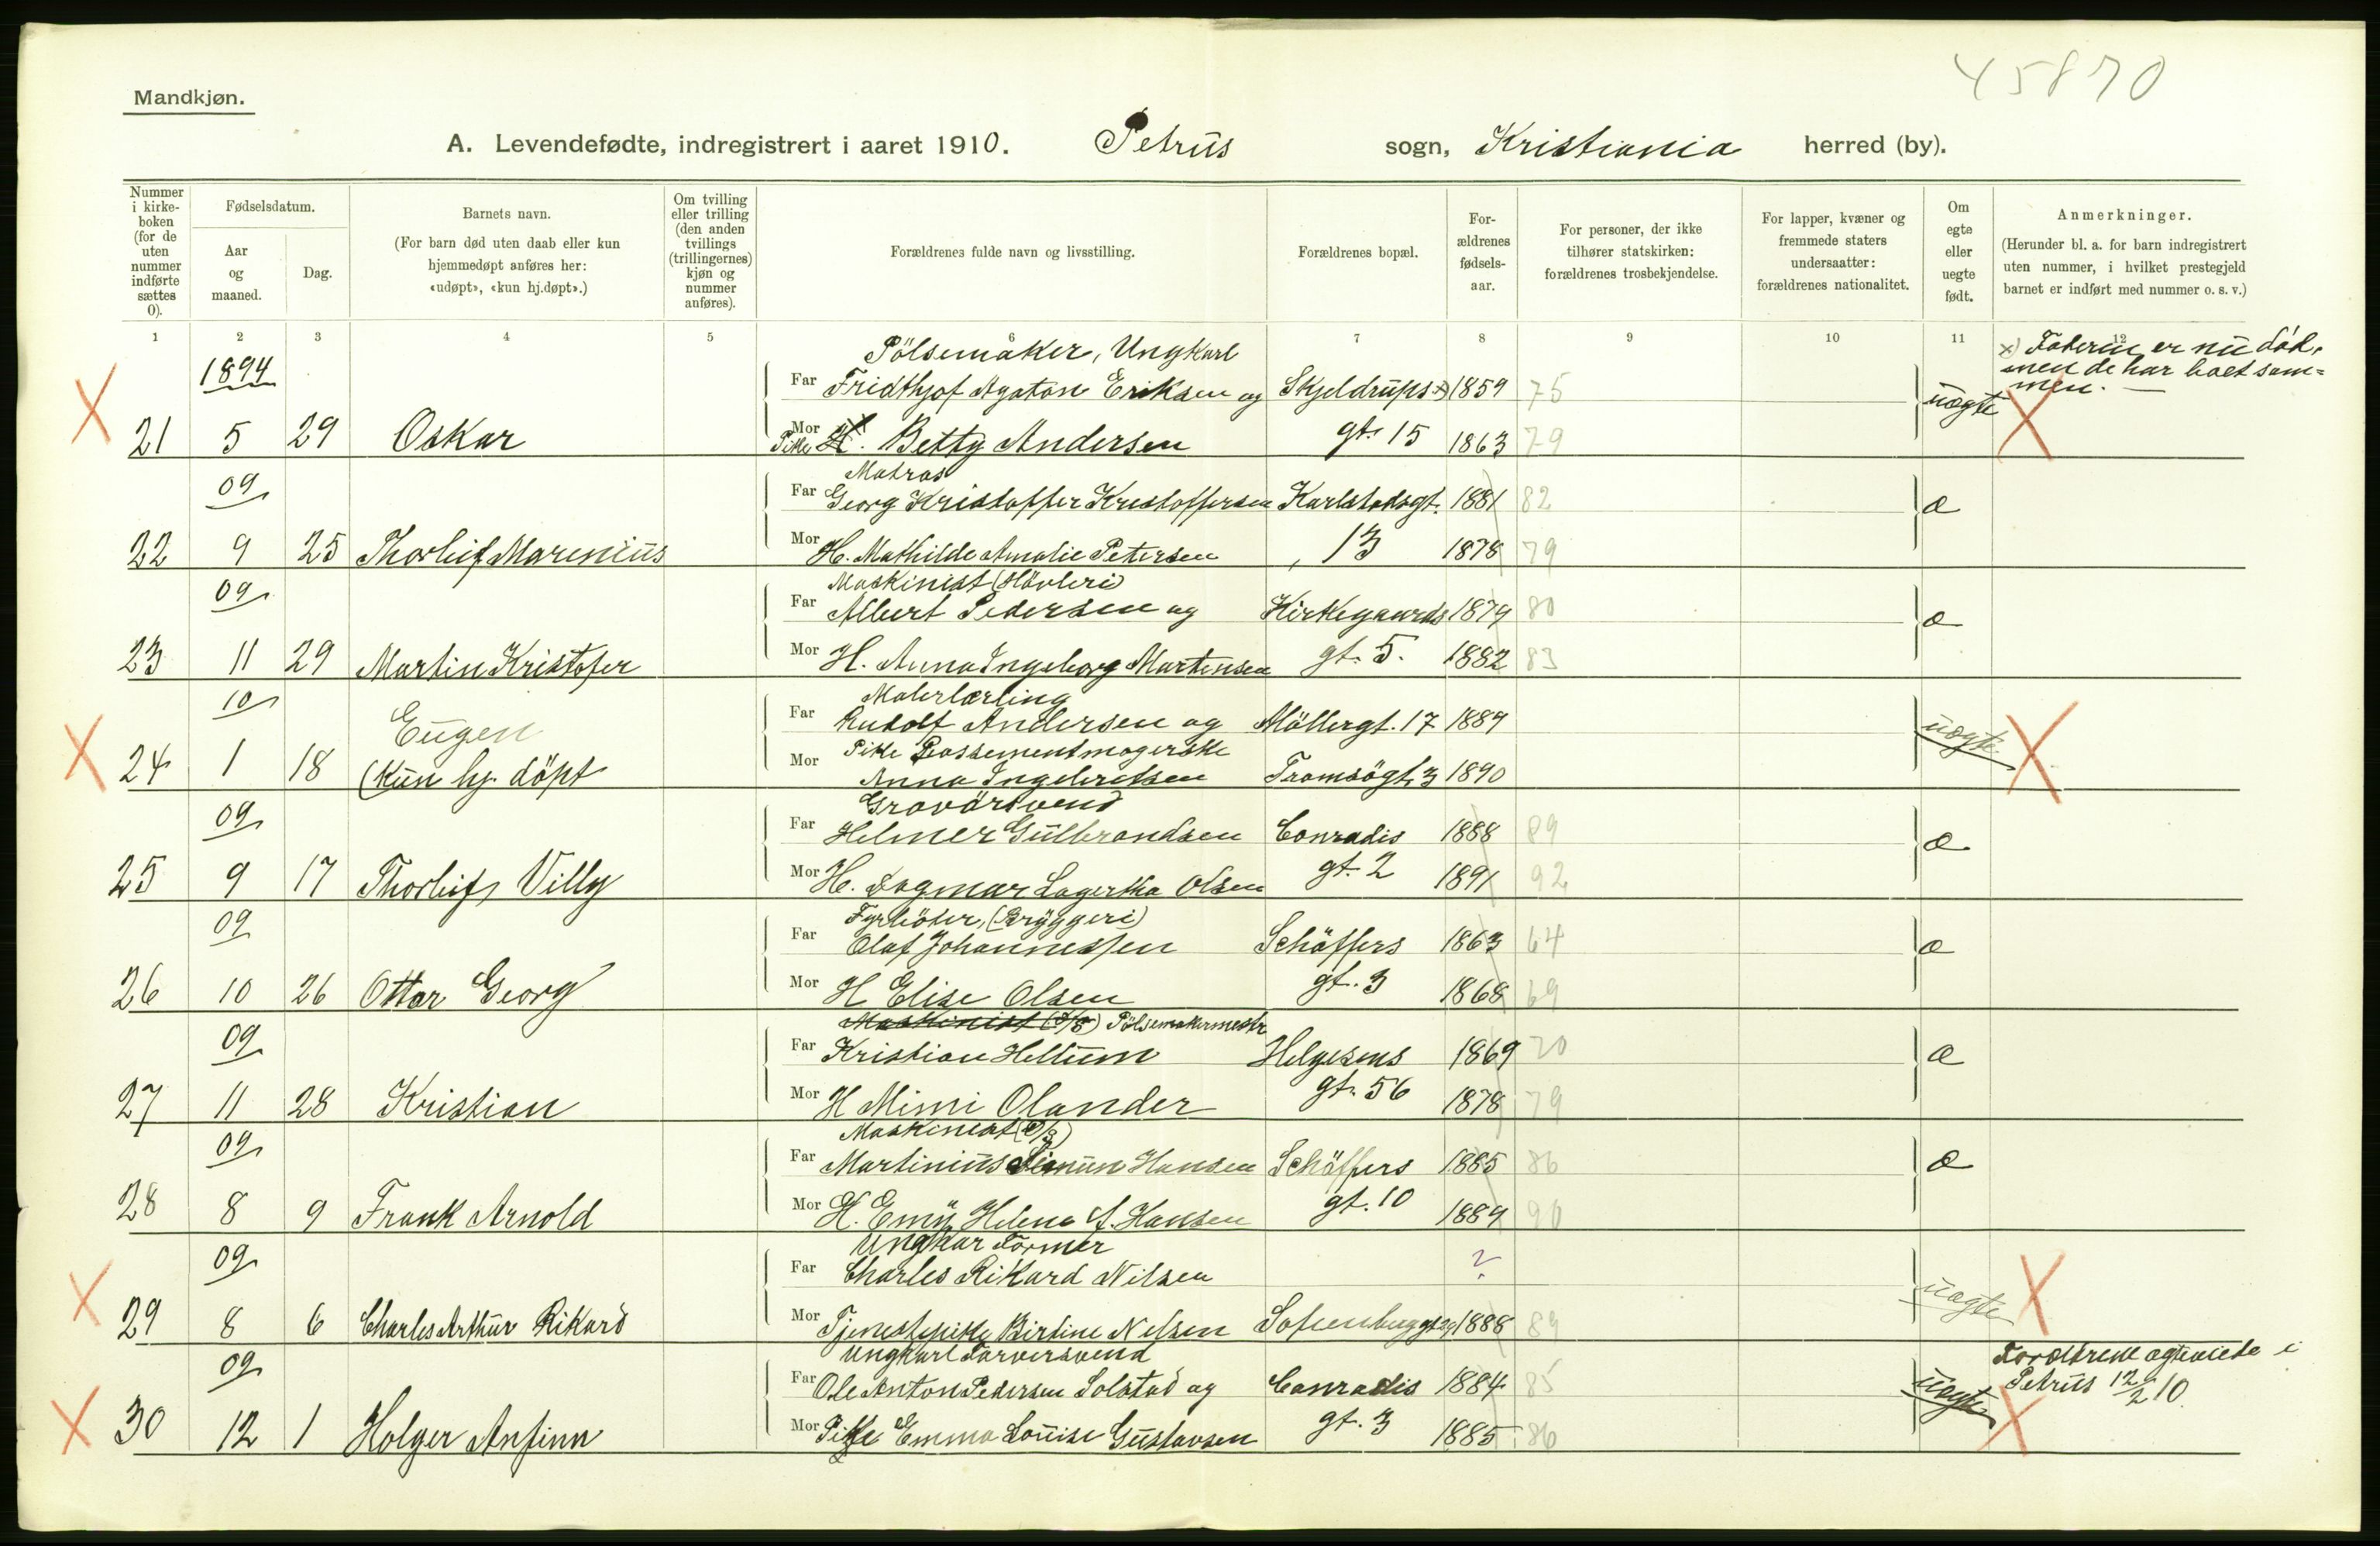 45870
Mandkjøn.
A. Levendefødte, indregistrert i aaret 1910. Petrus sogn, Kristiania herred (by).
Nummer i kirkeboken (for de uten nummer indførte sættes 0).
Fødselsdatum.
Aar og maaned.
Dag.
Barnets navn.
(For barn død uten daab eller kun hjemmedøpt anføres her: «udøpt», «kun hj.døpt».)
Om tvilling eller trilling (den anden tvillings (trillingernes) kjøn og nummer anføres).
Forældrenes fulde navn og livsstilling.
Forældrenes bopæl.
For-ældrenes fødsels-aar.
For personer, der ikke tilhører statskirken: forældrenes trosbekjendelse.
For lapper, kvæner og fremmede staters undersaatter: forældrenes nationalitet.
Om egte eller uegte født.
Anmerkninger.
(Herunder bl. a. for barn indregistrert uten nummer, i hvilket prestegjeld barnet er indført med nummer o. s. v.)
1 2 3 4 5 6 7 8 9 10 11 12
1894 Pölsemaker, Ungkarl x) Faderen er nu död,
men de har boet sam=
men.
Far Fridthjof Agaton Eriksen og Skjeldrups x) 1859 75 uægte
21 5 29 Oskar Mor Pike H. Betty Andersen gt. 15 1863 79
09 Matros
Far Georg Kristoffer Kristoffersen Karlstadsgt. 1881 82 æ
22 9 25 Thorleif Marenius Mor H. Mathilde Amalie Petersen 13 1878 79
09 Maskinist (Hövleri)
Far Albert Pedersen og Kirkegaards 1879 80 æ
23 11 29 Martin Kristofer Mor H. Anna Ingeborg Martensen gt. 5. 1882 83
10 Malerlærling
Eugen Far Rudolf Andersen og Möllergt. 17 1889 uægte
24 1 18 (Kun hj. döpt Mor Pike Possementmagerske
Anna Ingebretsen Tromsögt. 3 1890
09 Gravörsvend
Far Helmer Gulbrandsen Conradis 1888 89 æ
25 9 17 Thorleif Villy Mor H. Dagmar Lagertha Olsen gt. 2 1891 92
09 Fyrböter, (Bryggeri)
Far Olaf Johannessen Schäffers 1863 64 æ
26 10 26 Ottar Georg Mor H Elise Olsen gt. 3 1868 69
09 Maskinist (D/S) Pölsemakermestr
Far Kristian Hellum Helgesens 1869 70 æ
27 11 28 Kristian Mor H Mimi Olander gt. 56 1878 79
09 Maskinist (D/S)
Far Martinius Simun Hansen Schäffers 1885 86 æ
28 8 9 Frank Arnold Mor H. Emy Helene A. Hansen gt. 10 1889 90
09 Ungkar Former
Far Charles Rikard Nilsen ? uægte
29 8 6 Charles Arthur Rikard Mor Tjenestepike Birtine Nilsen 1888 89
09 Ungkarl Farversvend Forældrene ægteviede i
Far Ole Anton Pedersen Solstad og Conradis 1884 85 uægte Petrus 12/2 10.
30 12 1 Holger Anfinn Mor Pike Emma Louise Gustavsen gt. 3 1885 86